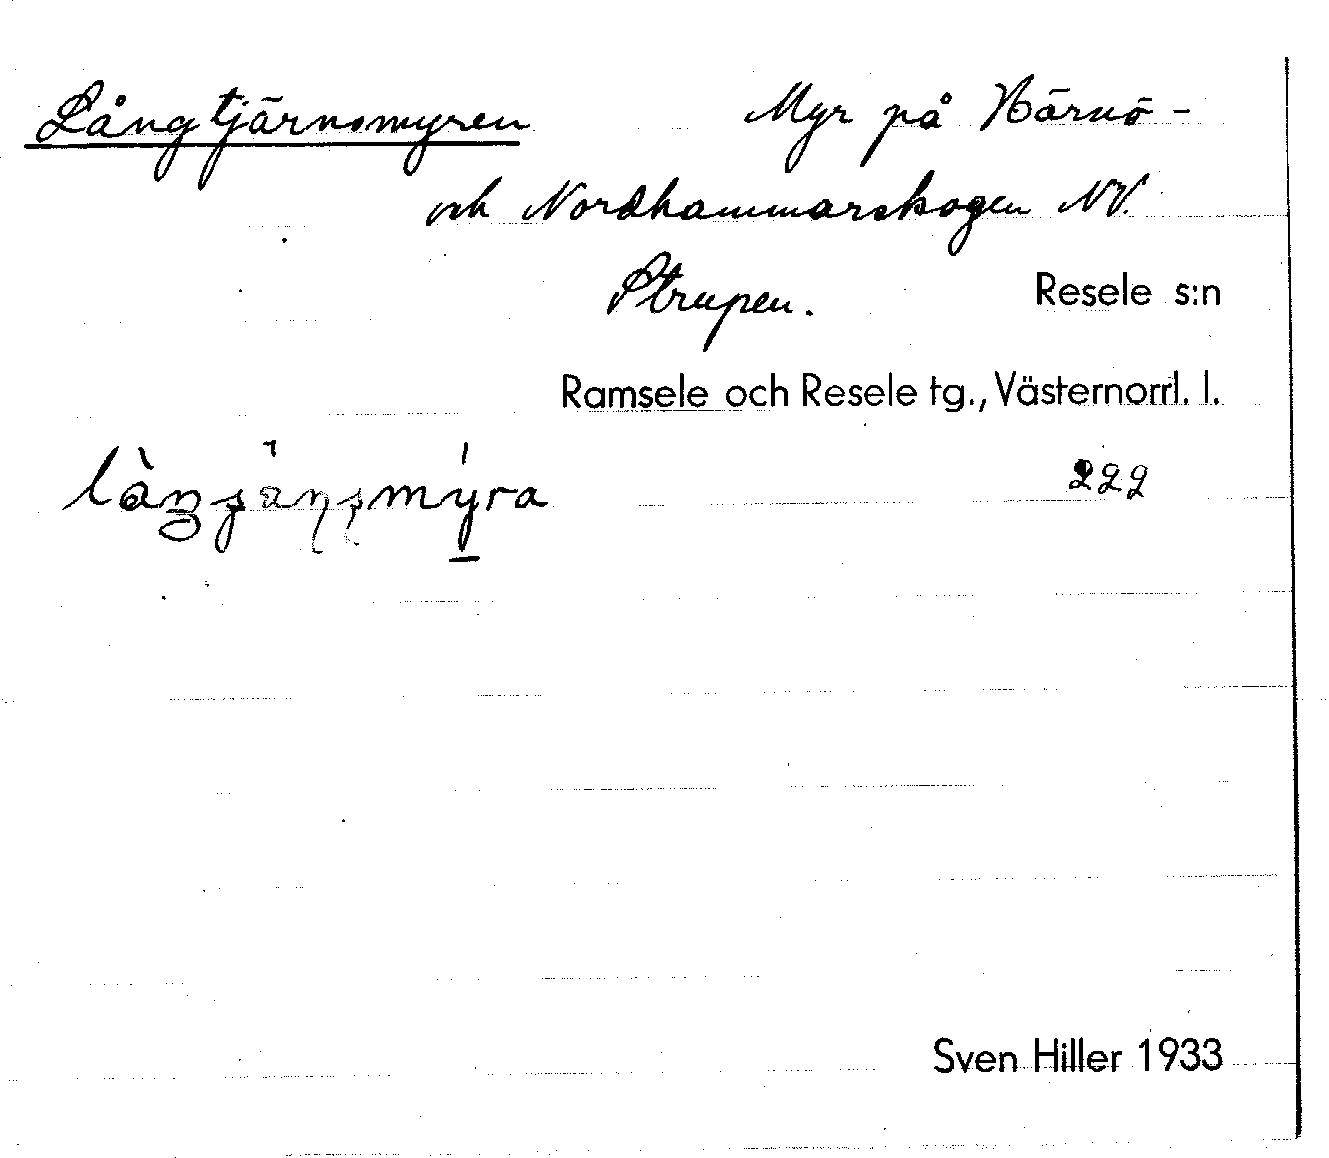 Långtjärnsmyren Myr på Härnö-
och Nordhammarskogen NV.
Strupen. Resele s:n
Ramsele och Resele tg., Västernorrl. l.
222
Sven Hiller 1933